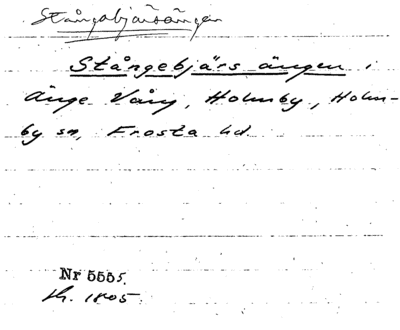 Stångebjärsängen
Stångebjärs ängen i
änge Vång, Holmby, Holm-
by sn, Frosta hd.
Nr 5555.
h. 1805.